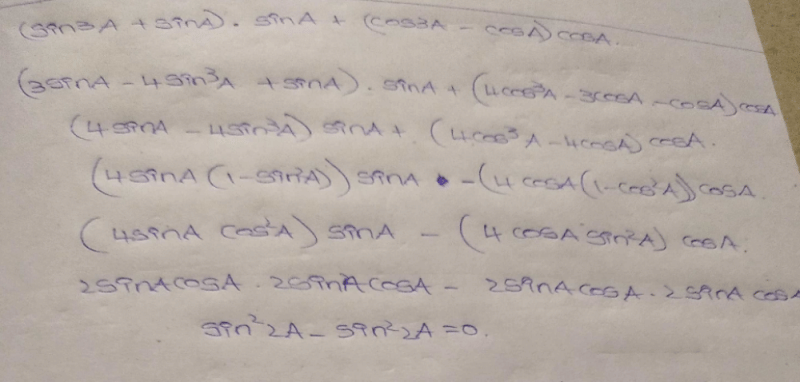 (sin3A + sinA). sinA + (cos3A - cosA) cosA.
(3sinA - 4sin³A + sinA). sinA + (4cos³A - 3cosA - cosA) cosA
(4sinA - 4sin³A) sinA + (4cos³A - 4cosA) cosA.
(4sinA (1-sin²A)) sinA - (4cosA (1-cos²A)) cosA.
(4sinA cos²A) sinA - (4cosA sin²A) cosA.
2sinAcosA . 2sinAcosA - 2sinAcosA . 2sinA cosA
sin²2A - sin²2A = 0.